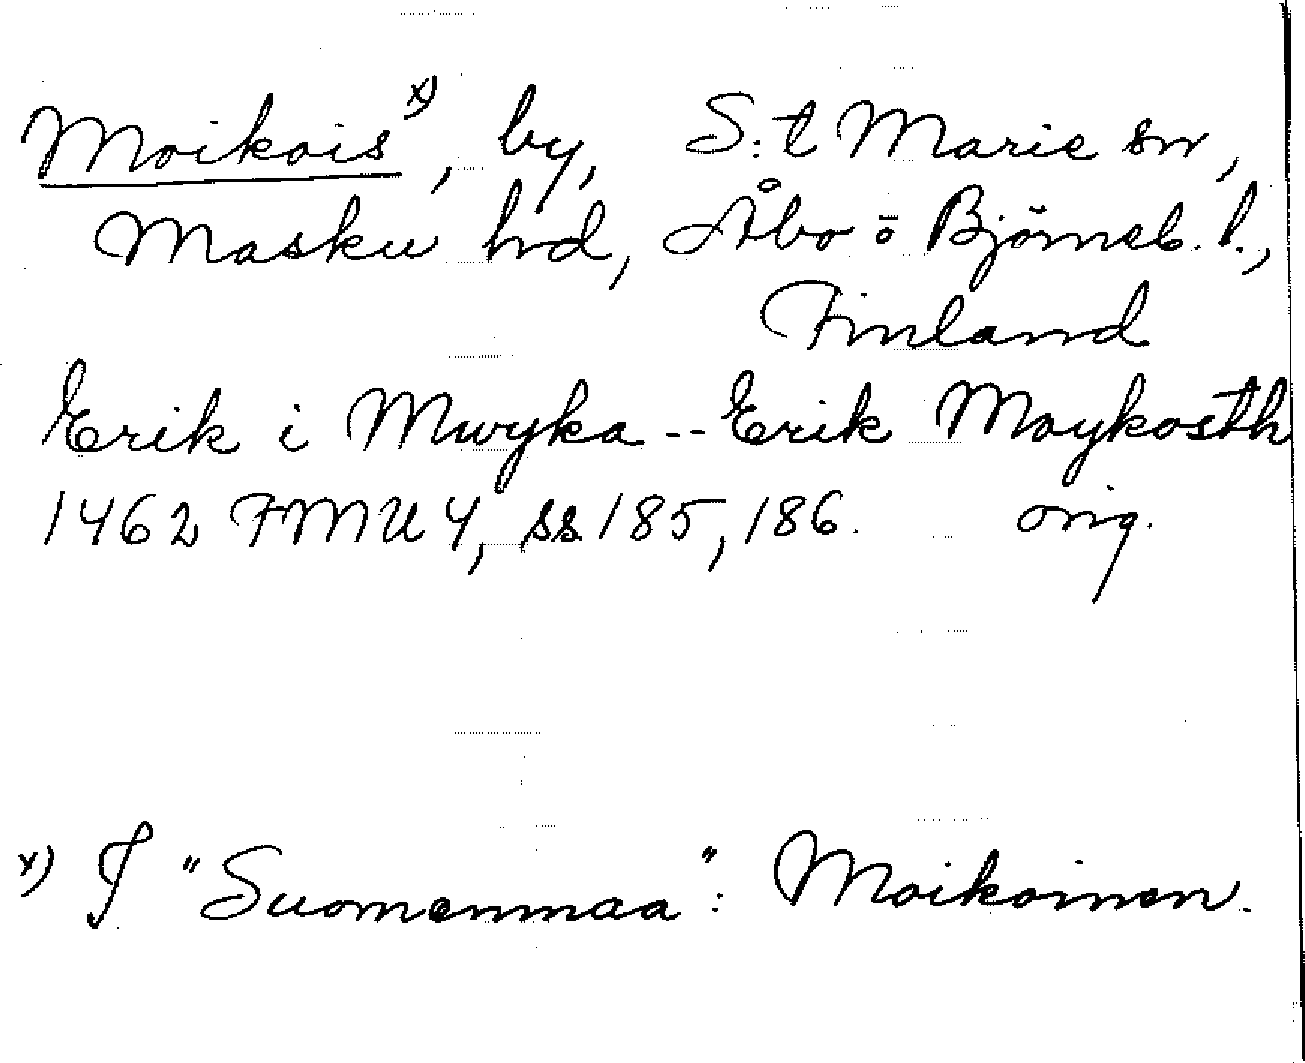 Moikois x), by, S:t Marie sn,
Masku hrd, Åbo o Björneb. l.,
Finland
Erik i Mwyka -- Erik Moykosth
1462 FMU 4, ss 185, 186. orig.
x) I "Suomenmaa": Moikoinen.